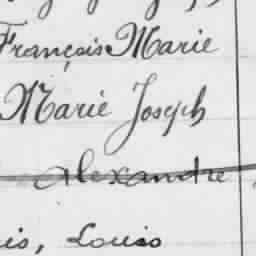 François Marie
Marie Joseph
Alexandre
is, Louis